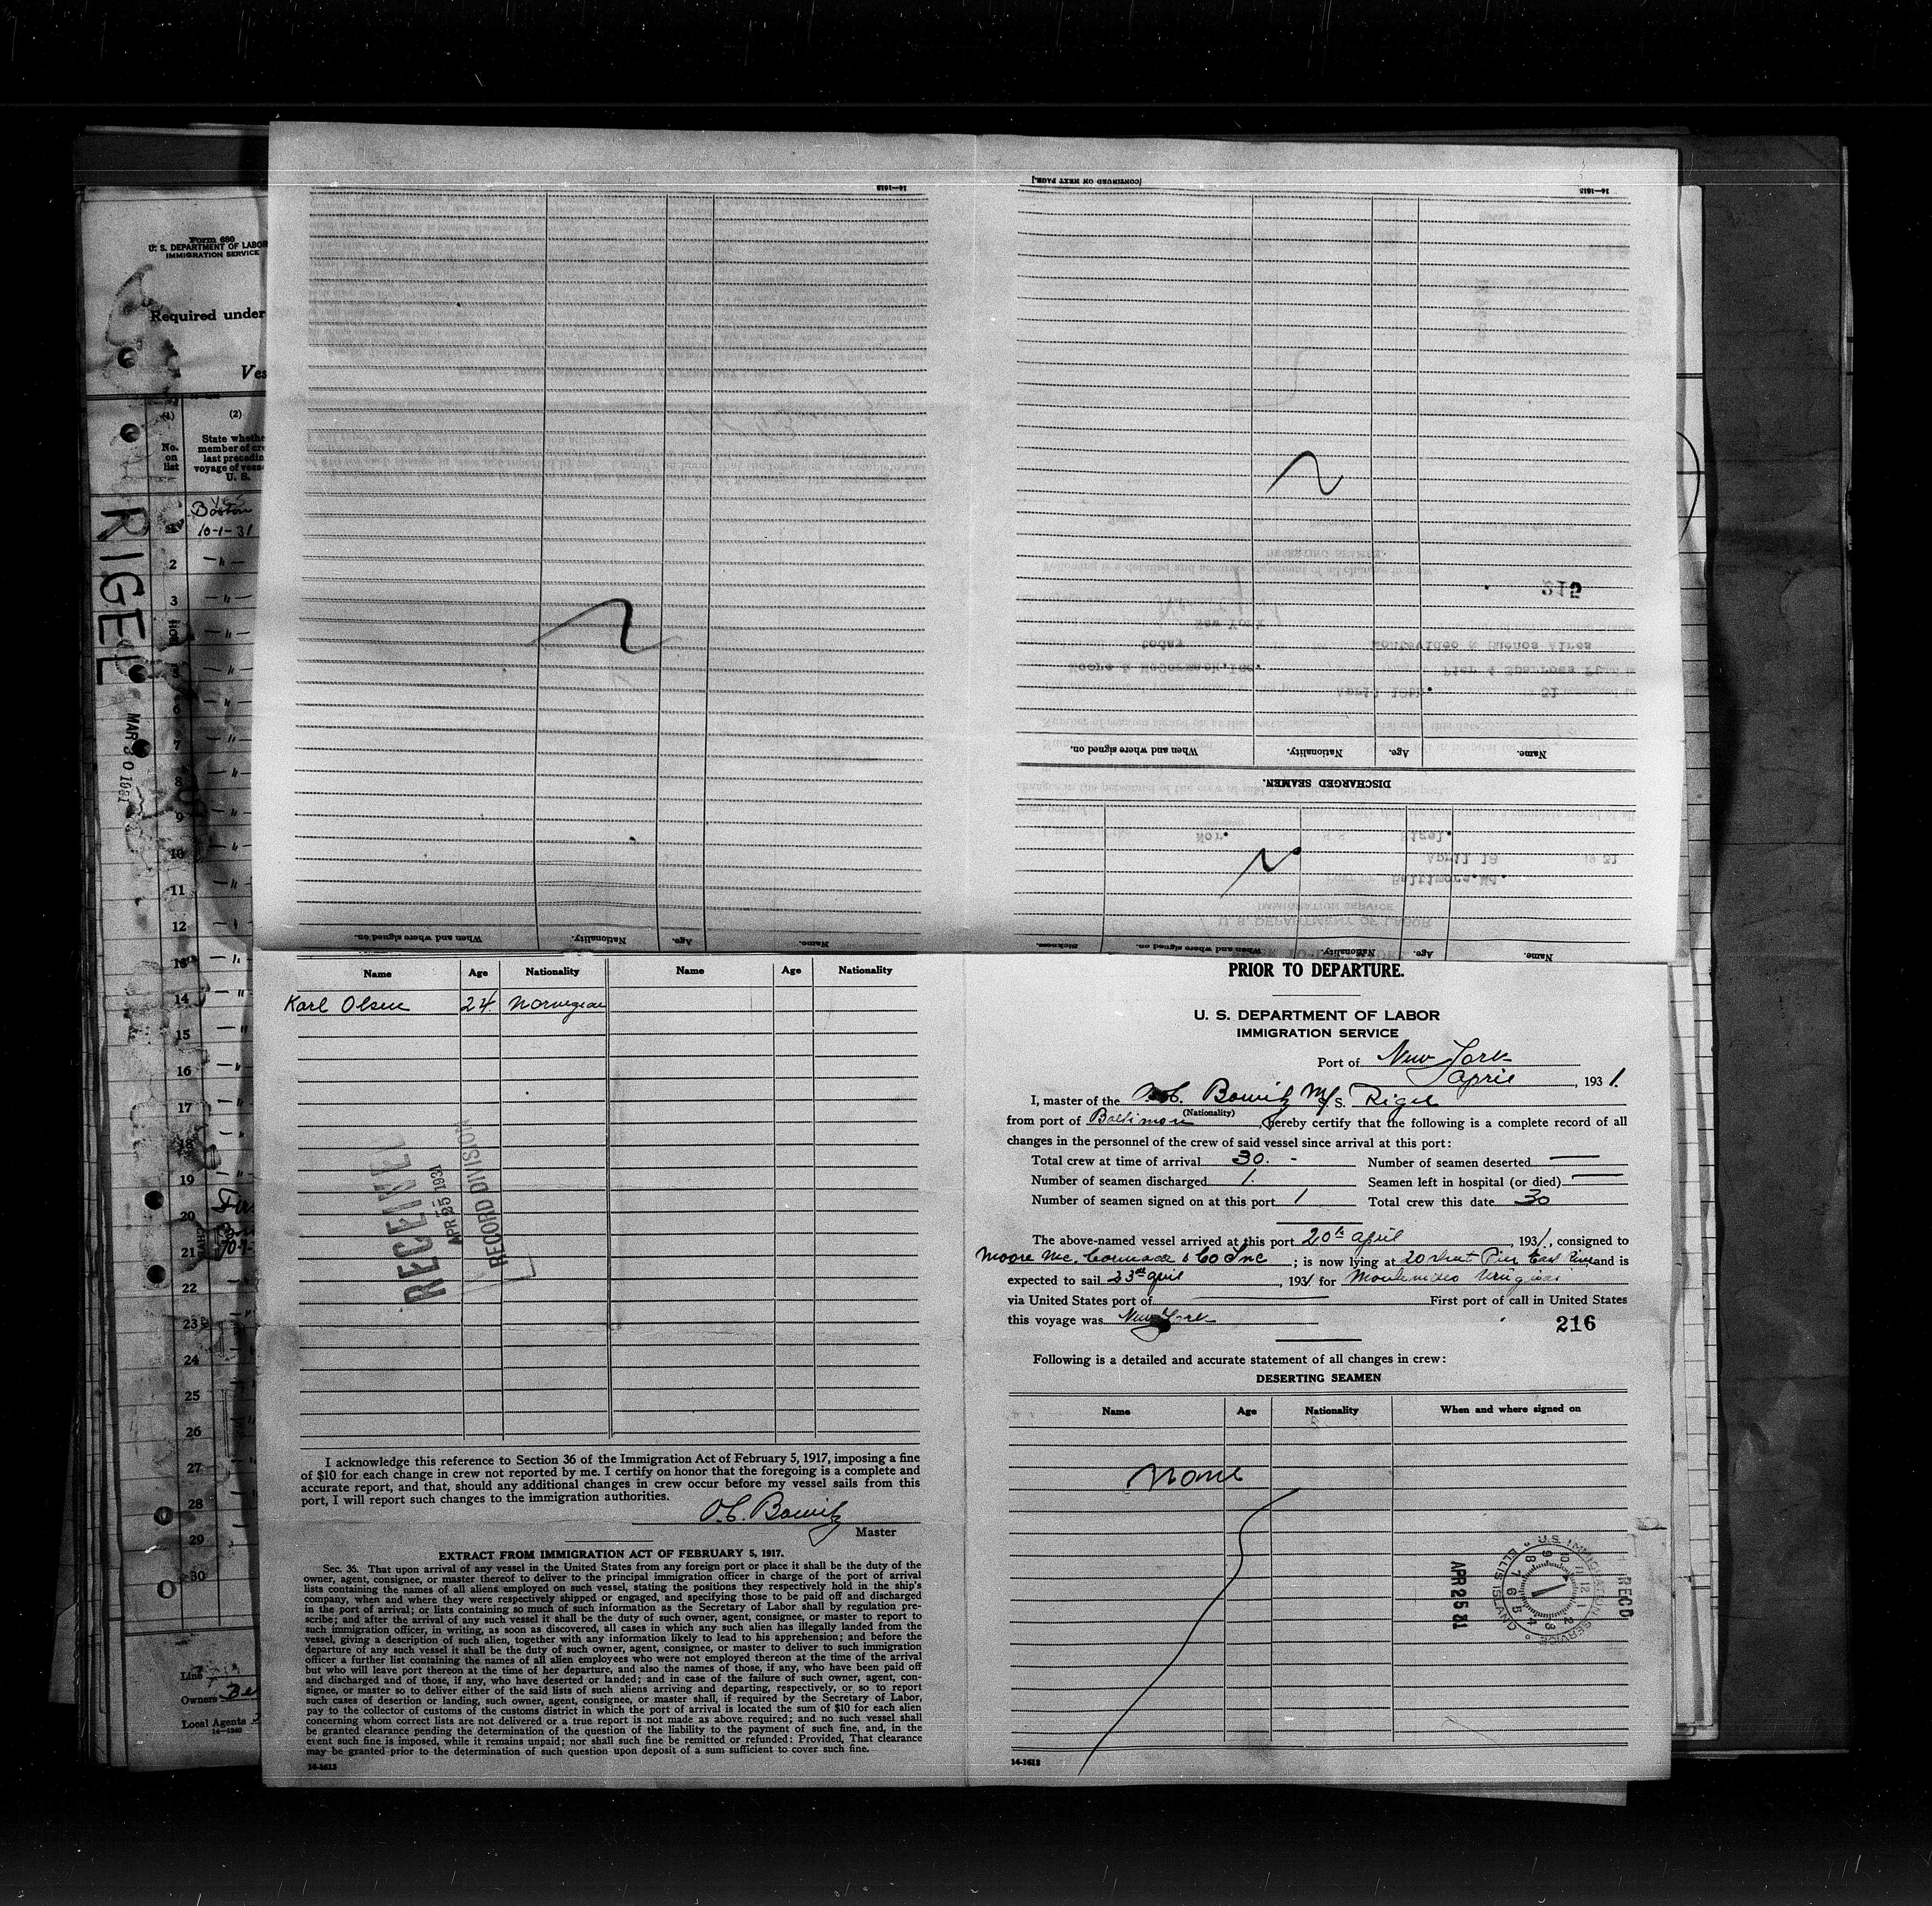 Form 680
U. S. DEPARTMENT OF LABOR
IMMIGRATION SERVICE
Required under
Ves
(1) (2)
No. on list
State whethe
member of cre
last precedin
voyage of vess
U. S.
yes
Boston
10-1-31
2
3
5
6
7
8
9
10
11
12
13
14
15
16
17
18
19
20
21
22
23
24
25
26
27
28
29
30
RIGEL
MAR 30 1931
Line
Owners
Local Agents
14—1240
14—1613
[CONTINUED ON NEXT PAGE.]
14—1613
Name. Age. Nationality. When and where signed on.
DISCHARGED SEAMEN.
Name. Age. Nationality. When and where signed on. Sickness.
Name. Age. Nationality. When and where signed on.
Name Age Nationality Name Age Nationality
Karl Olsen 24 Norwegian
RECEIVED
APR 25 1931
RECORD DIVISION
I acknowledge this reference to Section 36 of the Immigration Act of February 5, 1917, imposing a fine
of $10 for each change in crew not reported by me. I certify on honor that the foregoing is a complete and
accurate report, and that, should any additional changes in crew occur before my vessel sails from this
port, I will report such changes to the immigration authorities.
O.C. Bowitz
Master
EXTRACT FROM IMMIGRATION ACT OF FEBRUARY 5, 1917.
Sec. 36. That upon arrival of any vessel in the United States from any foreign port or place it shall be the duty of the
owner, agent, consignee, or master thereof to deliver to the principal immigration officer in charge of the port of arrival
lists containing the names of all aliens employed on such vessel, stating the positions they respectively hold in the ship's
company, when and where they were respectively shipped or engaged, and specifying those to be paid off and discharged
in the port of arrival; or lists containing so much of such information as the Secretary of Labor shall by regulation pre-
scribe; and after the arrival of any such vessel it shall be the duty of such owner, agent, consignee, or master to report to
such immigration officer, in writing, as soon as discovered, all cases in which any such alien has illegally landed from the
vessel, giving a description of such alien, together with any information likely to lead to his apprehension; and before the
departure of any such vessel it shall be the duty of such owner, agent, consignee, or master to deliver to such immigration
officer a further list containing the names of all alien employees who were not employed thereon at the time of the arrival
but who will leave port thereon at the time of her departure, and also the names of those, if any, who have been paid off
and discharged and of those, if any, who have deserted or landed; and in case of the failure of such owner, agent, con-
signee, or master so to deliver either of the said lists of such aliens arriving and departing, respectively, or so to report
such cases of desertion or landing, such owner, agent, consignee, or master shall, if required by the Secretary of Labor,
pay to the collector of customs of the customs district in which the port of arrival is located the sum of $10 for each alien
concerning whom correct lists are not delivered or a true report is not made as above required; and no such vessel shall
be granted clearance pending the determination of the question of the liability to the payment of such fine, and, in the
event such fine is imposed, while it remains unpaid; nor shall such fine be remitted or refunded: Provided, That clearance
may be granted prior to the determination of such question upon deposit of a sum sufficient to cover such fine.
14-1613
PRIOR TO DEPARTURE.
U. S. DEPARTMENT OF LABOR
IMMIGRATION SERVICE
Port of New York
April, 1931.
I, master of the O.C. Bowitz M/S. Rigel
(Nationality)
from port of Baltimore, hereby certify that the following is a complete record of all
changes in the personnel of the crew of said vessel since arrival at this port:
Total crew at time of arrival 30. - Number of seamen deserted —
Number of seamen discharged 1. Seamen left in hospital (or died) —
Number of seamen signed on at this port 1 Total crew this date 30
The above-named vessel arrived at this port 20th april, 1931, consigned to
Moore Mc. Cormack & Co Inc; is now lying at 20 street Pier East River and is
expected to sail 23rd april, 1931 for Montevideo Uruguay
via United States port of First port of call in United States
this voyage was New York
216
Following is a detailed and accurate statement of all changes in crew:
DESERTING SEAMEN
Name Age Nationality When and where signed on
None
REC'D
U. S. IMMIGRATION SERVICE
ELLIS ISLAND
APR 25 31
14-1613